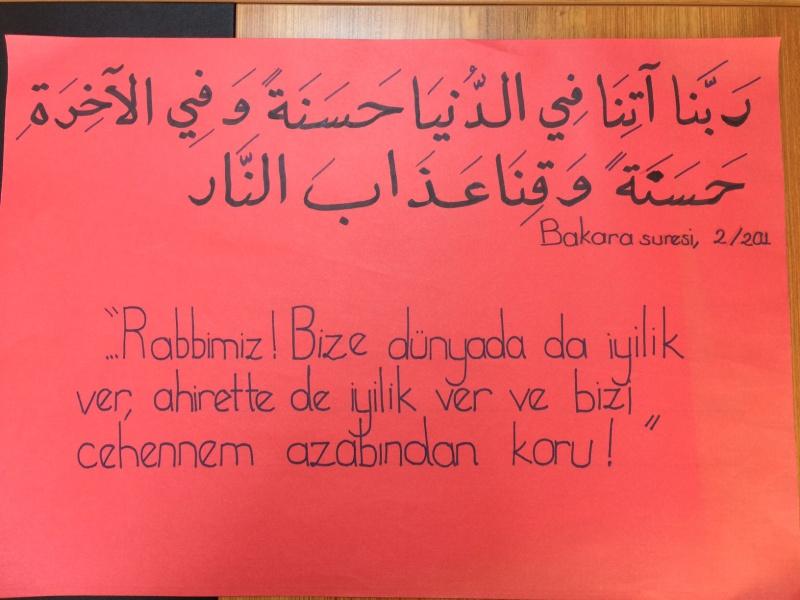 رَبَّنَا آتِنَا فِي الدُّنيَا حَسَنَةً وَ فِي الآخِرَةِ
حَسَنَةً وَقِنَا عَذَابَ النَّار
Bakara suresi, 2/201
“...Rabbimiz! Bize dünyada da iyilik
ver, ahirette de iyilik ver ve bizi
cehennem azabından koru!”